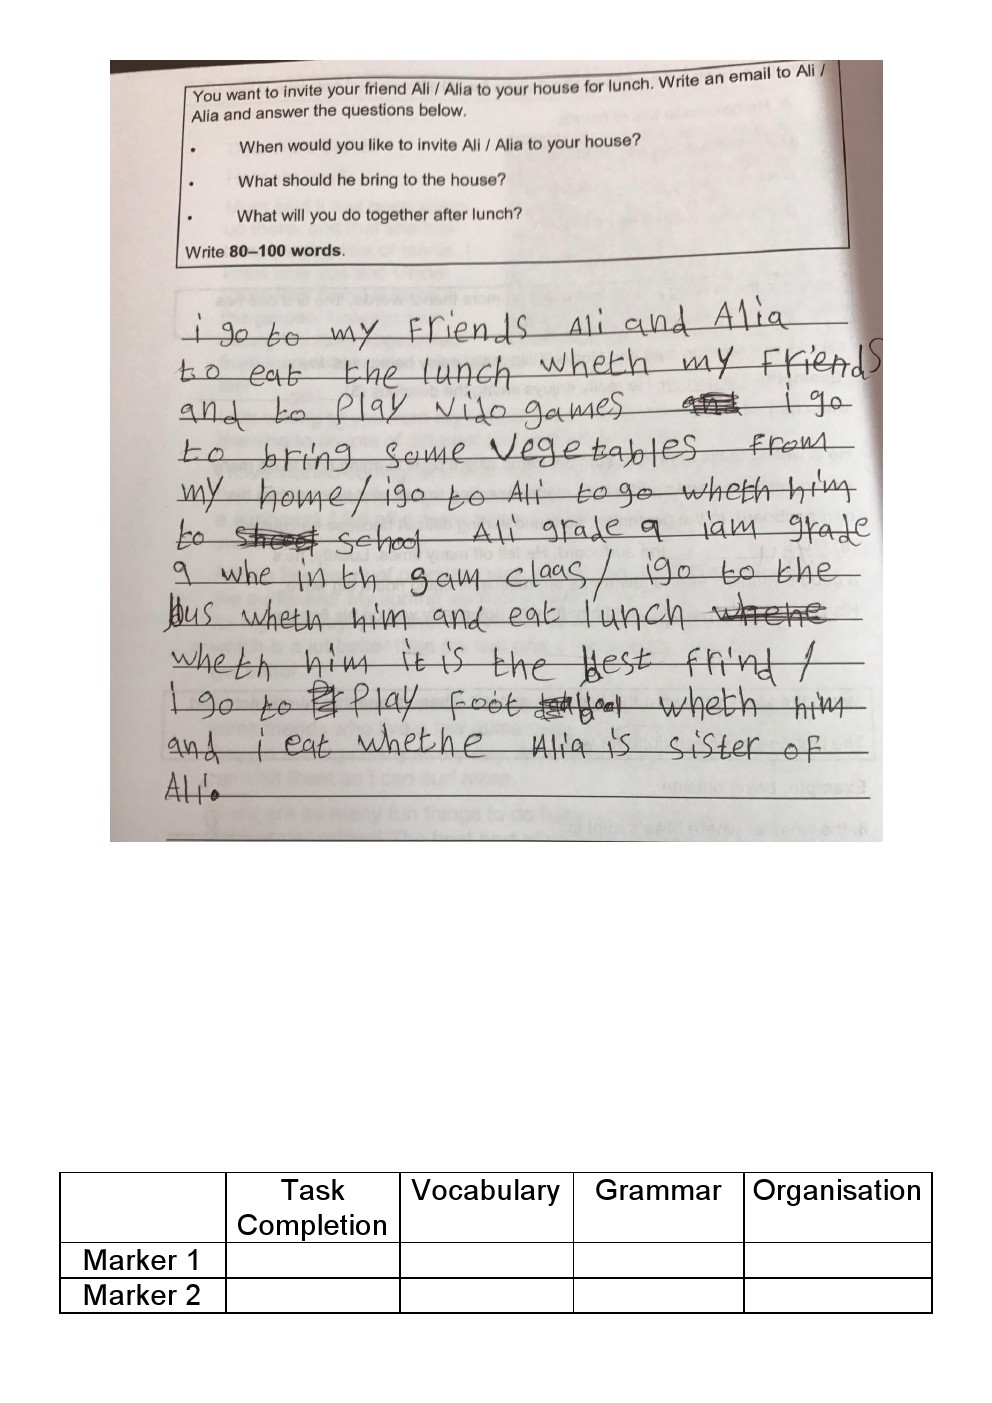 You want to invite your friend Ali / Alia to your house for lunch. Write an email to Ali /
Alia and answer the questions below.
• When would you like to invite Ali / Alia to your house?
• What should he bring to the house?
• What will you do together after lunch?
Write 80–100 words.
i go to my Friends Ali and Alia
to eat the lunch wheth my Friends
and to Play vido games i go
to bring some vegetables from
my home / igo to Ali to go wheth him
to school Ali grade 9 iam grade
9 whe in th gam claas / igo to the
bus wheth him and eat lunch
wheth him it is the best frind /
i go to Play Foot wheth him
and i eat whethe Alia is sister of
Ali.
Task Completion Vocabulary Grammar Organisation
Marker 1
Marker 2